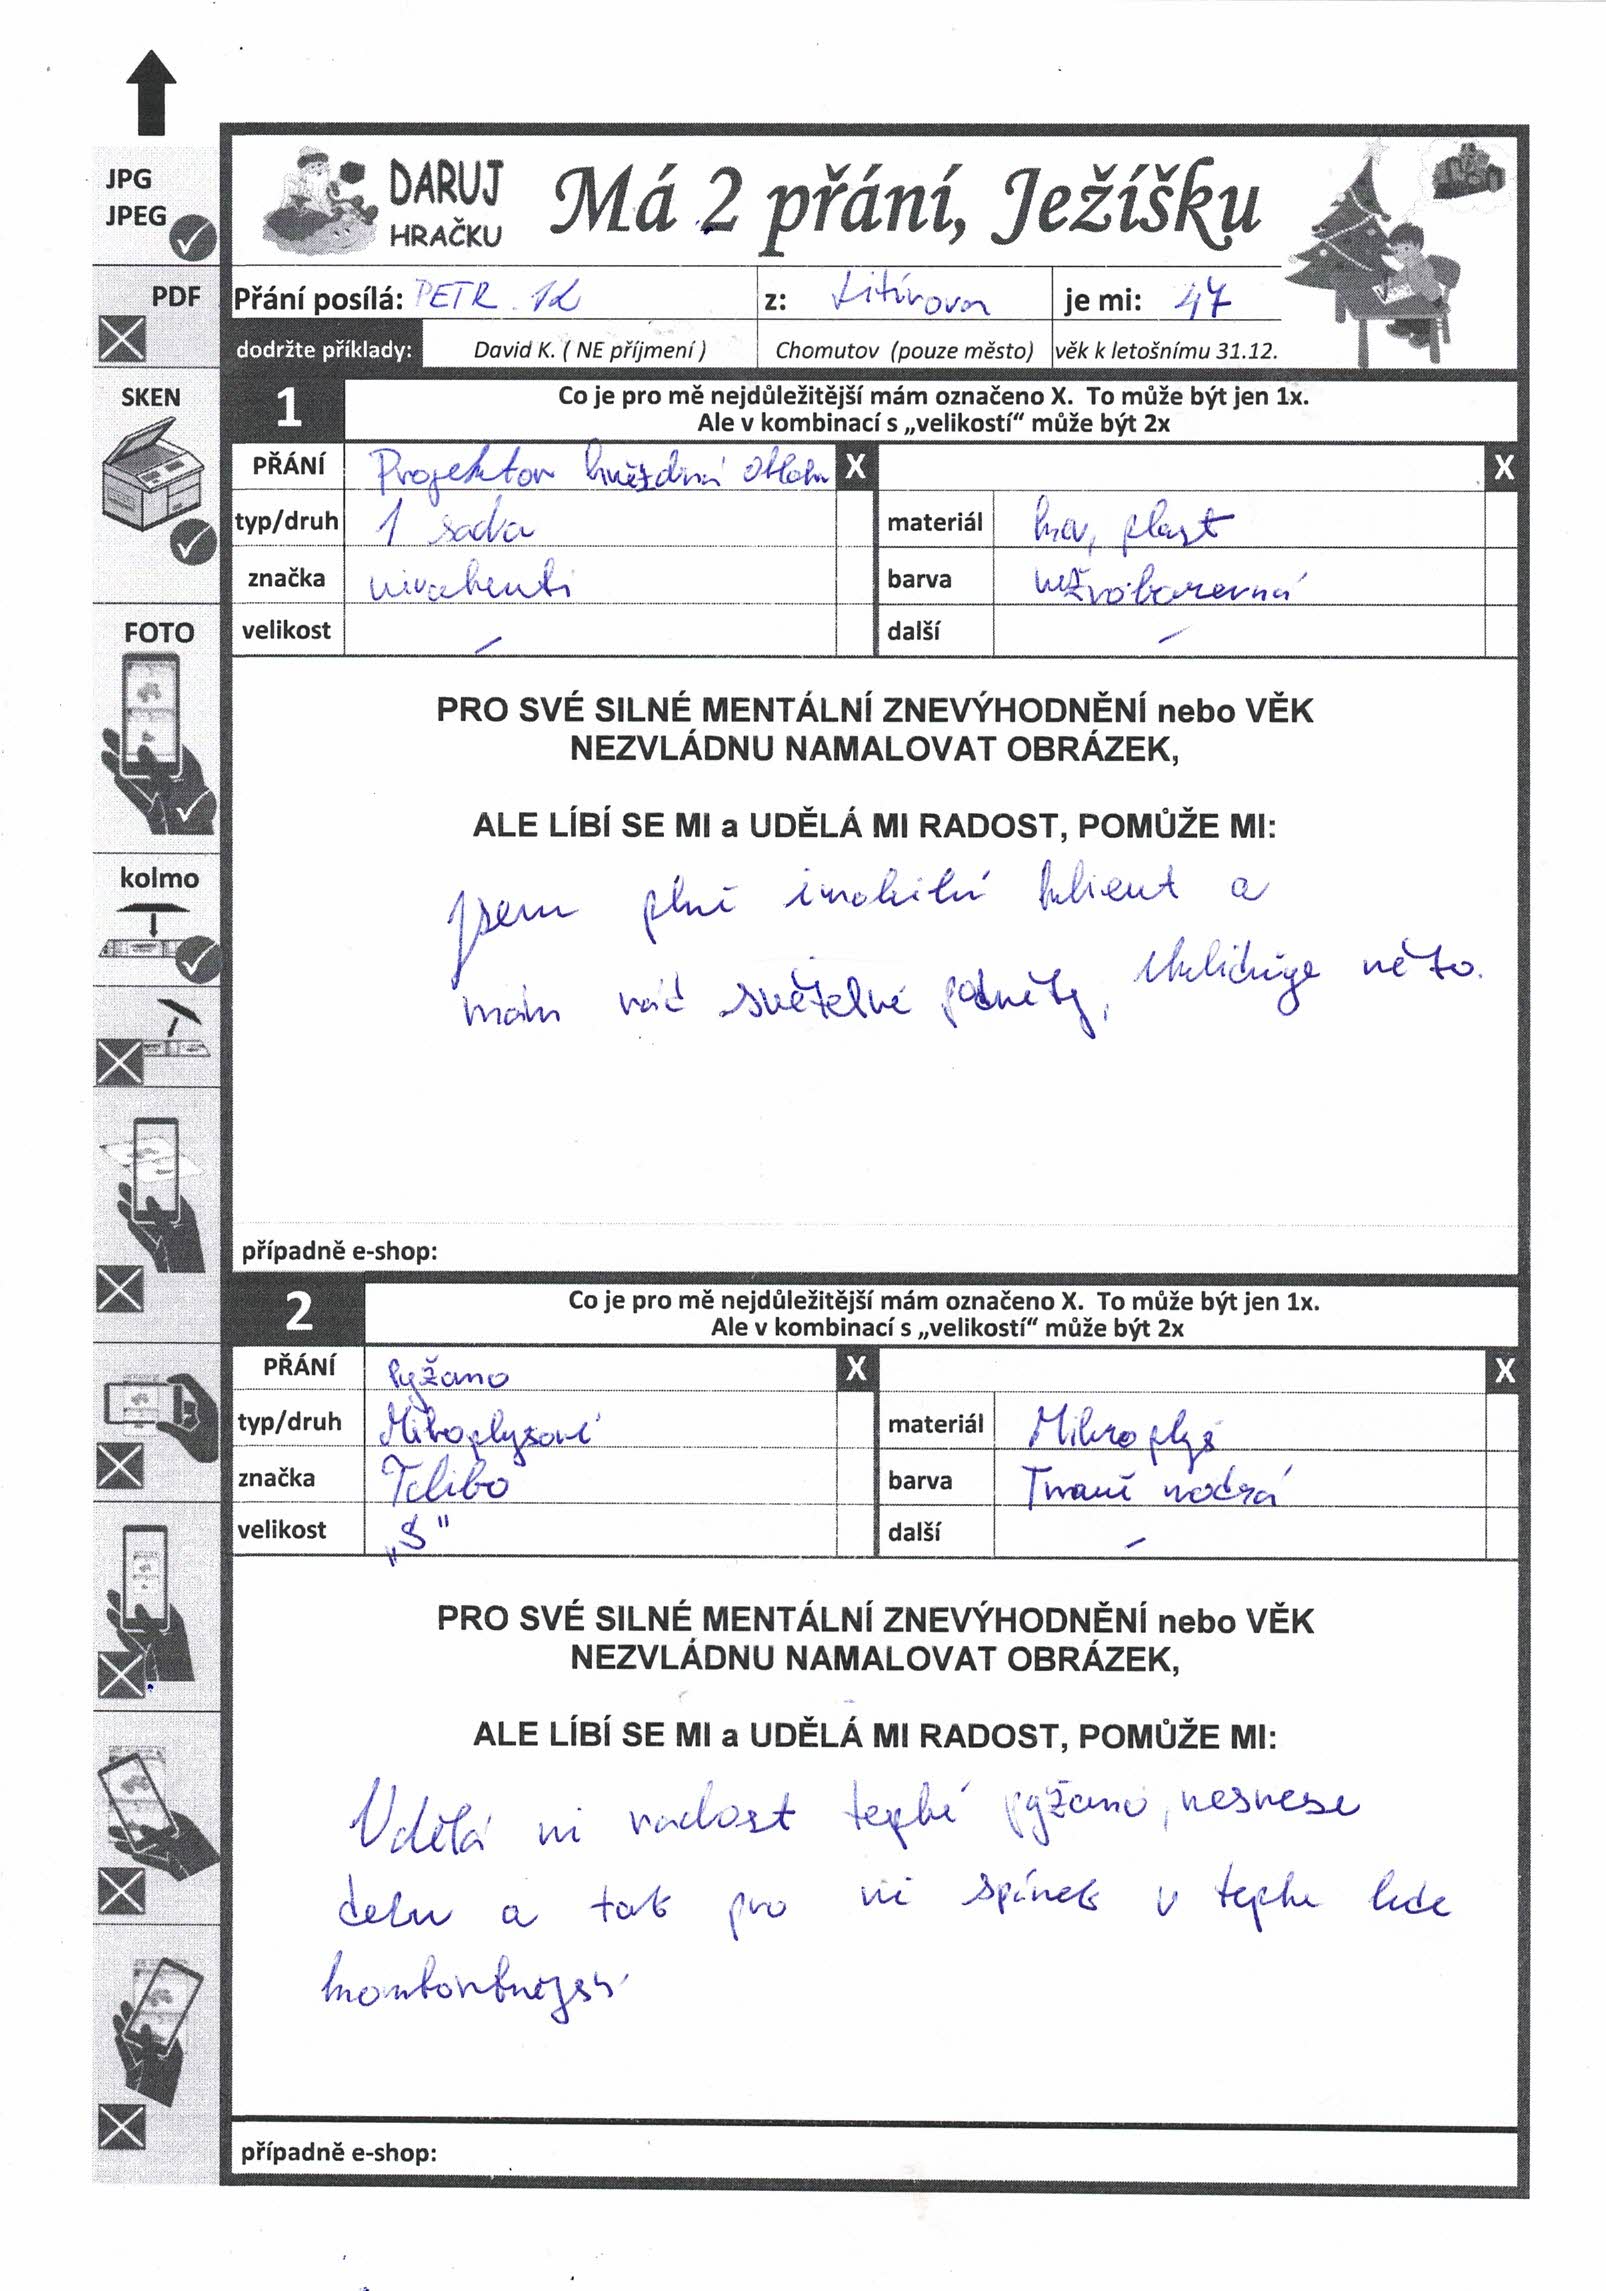 JPG
JPEG
PDF
SKEN
FOTO
kolmo
DARUJ
HRAČKU
Má 2 přání, Ježíšku
Přání posílá: PETR z: je mi: 47
dodržte příklady: David K. ( NE příjmení ) Chomutov (pouze město) věk k letošnímu 31.12.
1 Co je pro mě nejdůležitější mám označeno X. To může být jen 1x.
Ale v kombinací s „velikostí“ může být 2x
PŘÁNÍ Projektor hvězdná X X
typ/druh 1 sada materiál plast
značka barva
velikost – další –
PRO SVÉ SILNÉ MENTÁLNÍ ZNEVÝHODNĚNÍ nebo VĚK
NEZVLÁDNU NAMALOVAT OBRÁZEK,
ALE LÍBÍ SE MI a UDĚLÁ MI RADOST, POMŮŽE MI:
jsem plně imobilní klient a
mám rád světelné podněty, něto.
případně e-shop:
2 Co je pro mě nejdůležitější mám označeno X. To může být jen 1x.
Ale v kombinací s „velikostí“ může být 2x
PŘÁNÍ Pyžamo X X
typ/druh materiál Mikroplyš
značka barva Tmavě modrá
velikost „S" další –
PRO SVÉ SILNÉ MENTÁLNÍ ZNEVÝHODNĚNÍ nebo VĚK
NEZVLÁDNU NAMALOVAT OBRÁZEK,
ALE LÍBÍ SE MI a UDĚLÁ MI RADOST, POMŮŽE MI:
Udělá mi radost teplé pyžamo, nesnese
deku a tak pro ni spánek v teple bude
případně e-shop: